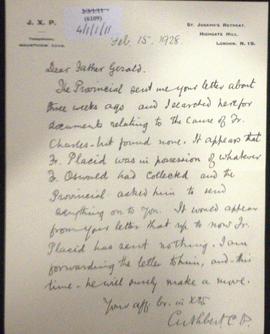 J. X. P.
(6109)
4/1/1/11
St. Joseph's Retreat,
Highgate Hill,
London, N. 19.
Feb 15th 1928.
Dear Father Gerald.
The Provincial sent me your letter about
three weeks ago and I searched here for
documents relating to the Cause of Fr.
Charles - but found none. It appears that
Fr. Placid was in possession of whatever
Fr. Oswald had collected and the
Provincial asked him to send
everything on to you. It would appear
from your letter that up to now Fr.
Placid has sent nothing. I am
forwarding the letter to him, and - this
time - he will surely make a move.
Your aff. br. in
Cuthbert C.P.